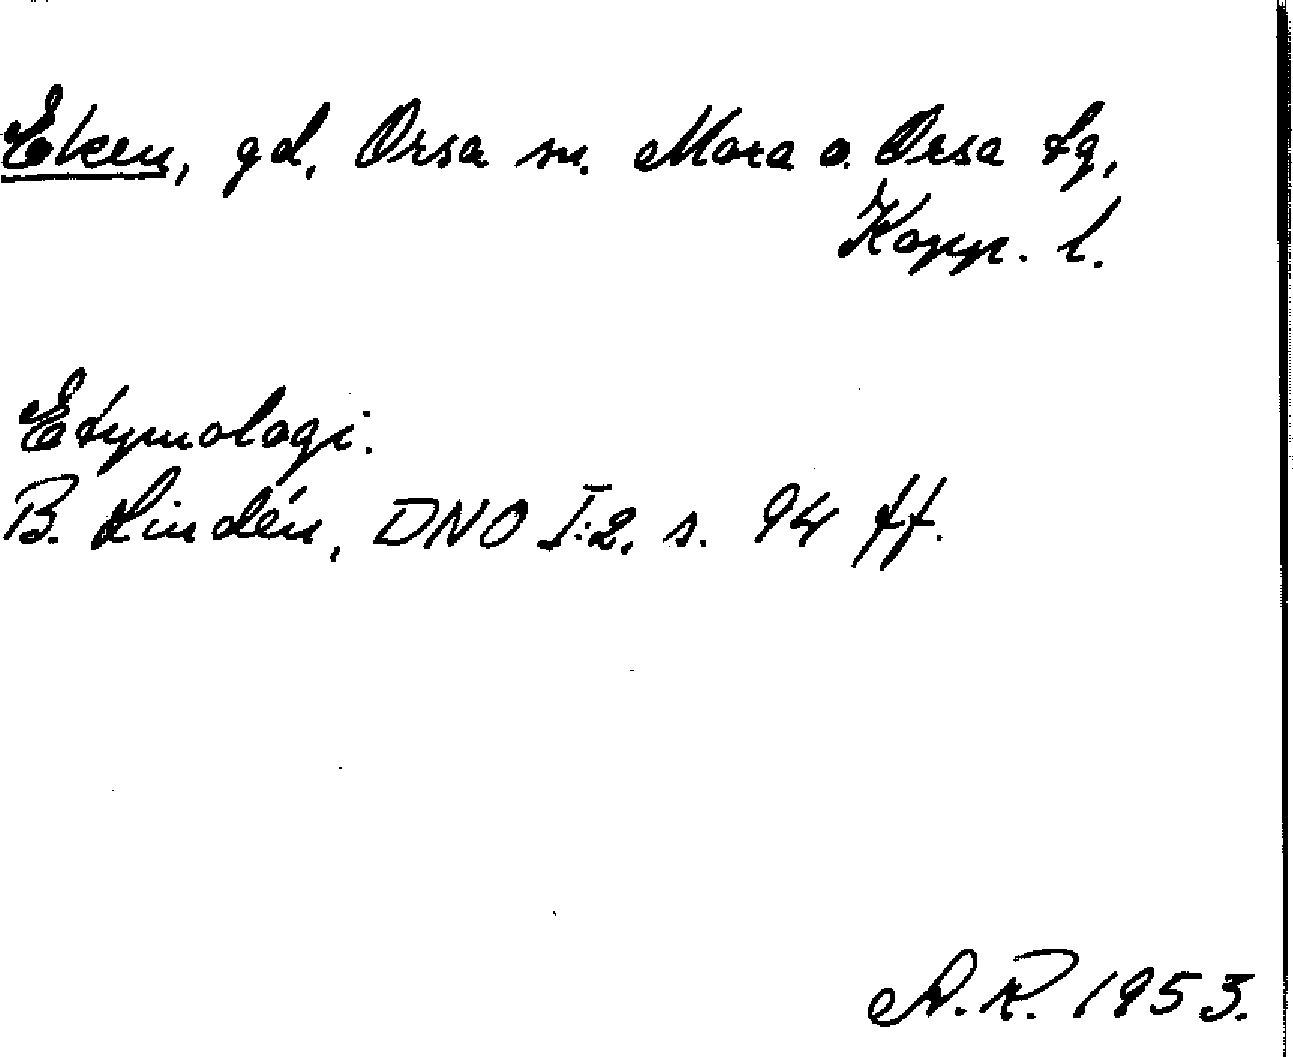 Eken, gd, Orsa sn. Mora o. Orsa tg,
Kopp. l.
Etymologi:
B. Lindén, DNO I:2, s. 94 ff.
A.R. 1953.